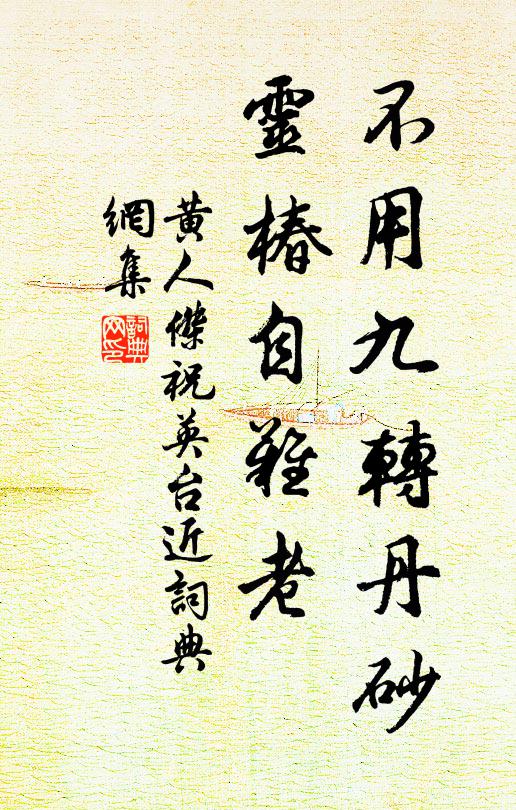 不用九轉丹砂
靈椿自難老
黃人傑祝英台近詞典
網集
詞典
网印